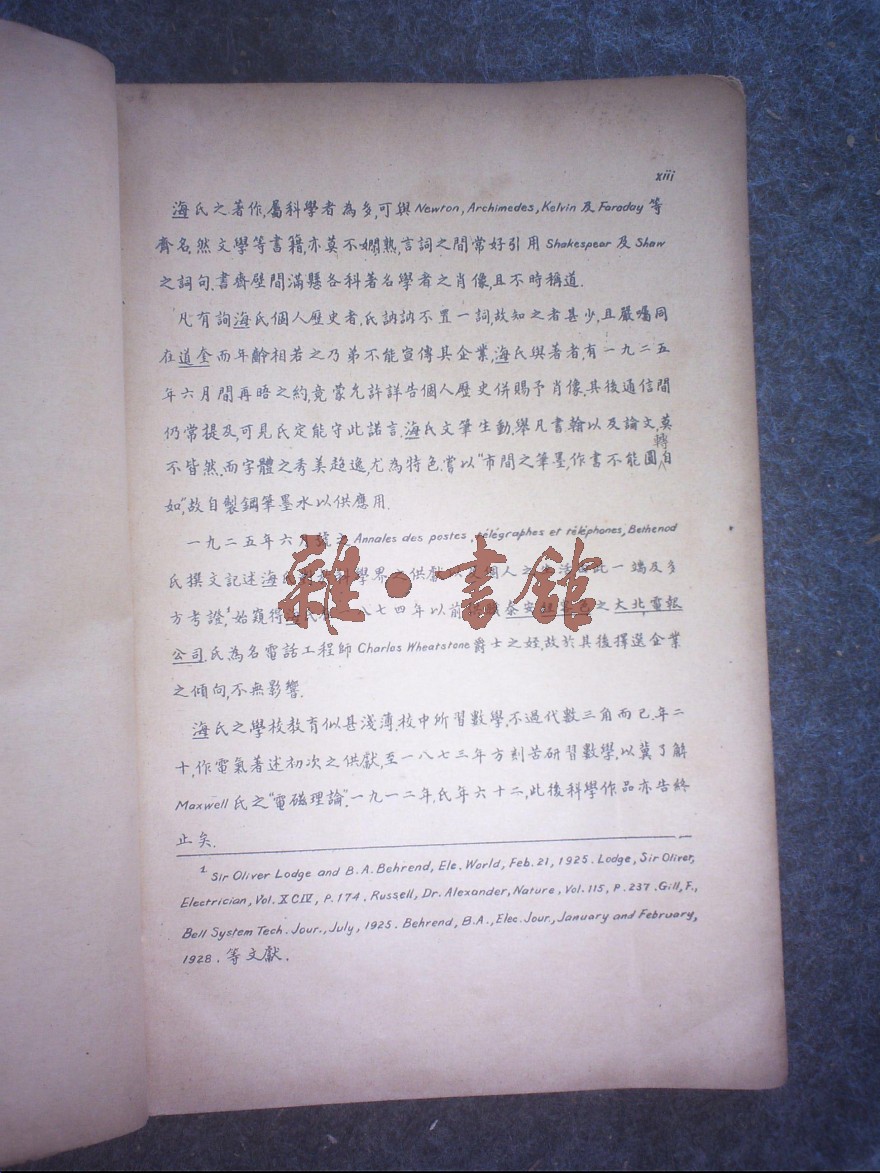 xiii
海氏之著作,屬科學者為多,可與Newton, Archimedes, Kelvin及Faraday等
齊名.然文學等書籍,亦莫不嫻熟,言詞之間常好引用Shakespear及Shaw
之詞句.書齋壁間滿懸各科著名學者之肖像,且不時稱道.
凡有詢海氏個人歷史者,氏訥訥不置一詞,故知之者甚少,且嚴囑同
在道奎而年齡相若之乃弟不能宣傳其企業,海氏與著者,有一九二五
年六月間再晤之約,竟蒙允許詳告個人歷史併賜予肖像.其後通信間
仍常提及,可見氏定能守此諾言.海氏文筆生動.舉凡書翰以及論文,莫
不皆然.而字體之秀美超逸,尤為特色.嘗以"市間之筆墨,作書不能圓轉自
如",故自製鋼筆墨水以供應用.
一九二五年六月號之Annales des postes, télégraphes et téléphones, Bethenod
氏撰文記述海氏學界之供獻個人之一端及多
方考證,¹始窺得海氏八七四年以前之大北電報
公司.氏為名電話工程師Charles Wheatstone爵士之姪,故於其後擇選企業
之傾向,不無影響.
海氏之學校教育似甚淺薄.校中所習數學,不過代數三角而已.年二
十,作電氣著述初次之供獻,至一八七三年方刻苦研習數學,以冀了解
Maxwell氏之"電磁理論".一九一二年,氏年六十二,此後科學作品亦告終
止矣.
¹ Sir Oliver Lodge and B.A.Behrend, Ele. World, Feb. 21, 1925. Lodge, Sir Oliver,
Electrician, Vol. XCIV, P.174. Russell, Dr. Alexander, Nature, Vol. 115, P. 237. Gill, F.,
Bell System Tech. Jour., July, 1925. Behrend, B.A., Elec. Jour., January and February,
1928. 等文獻.
雜·書館